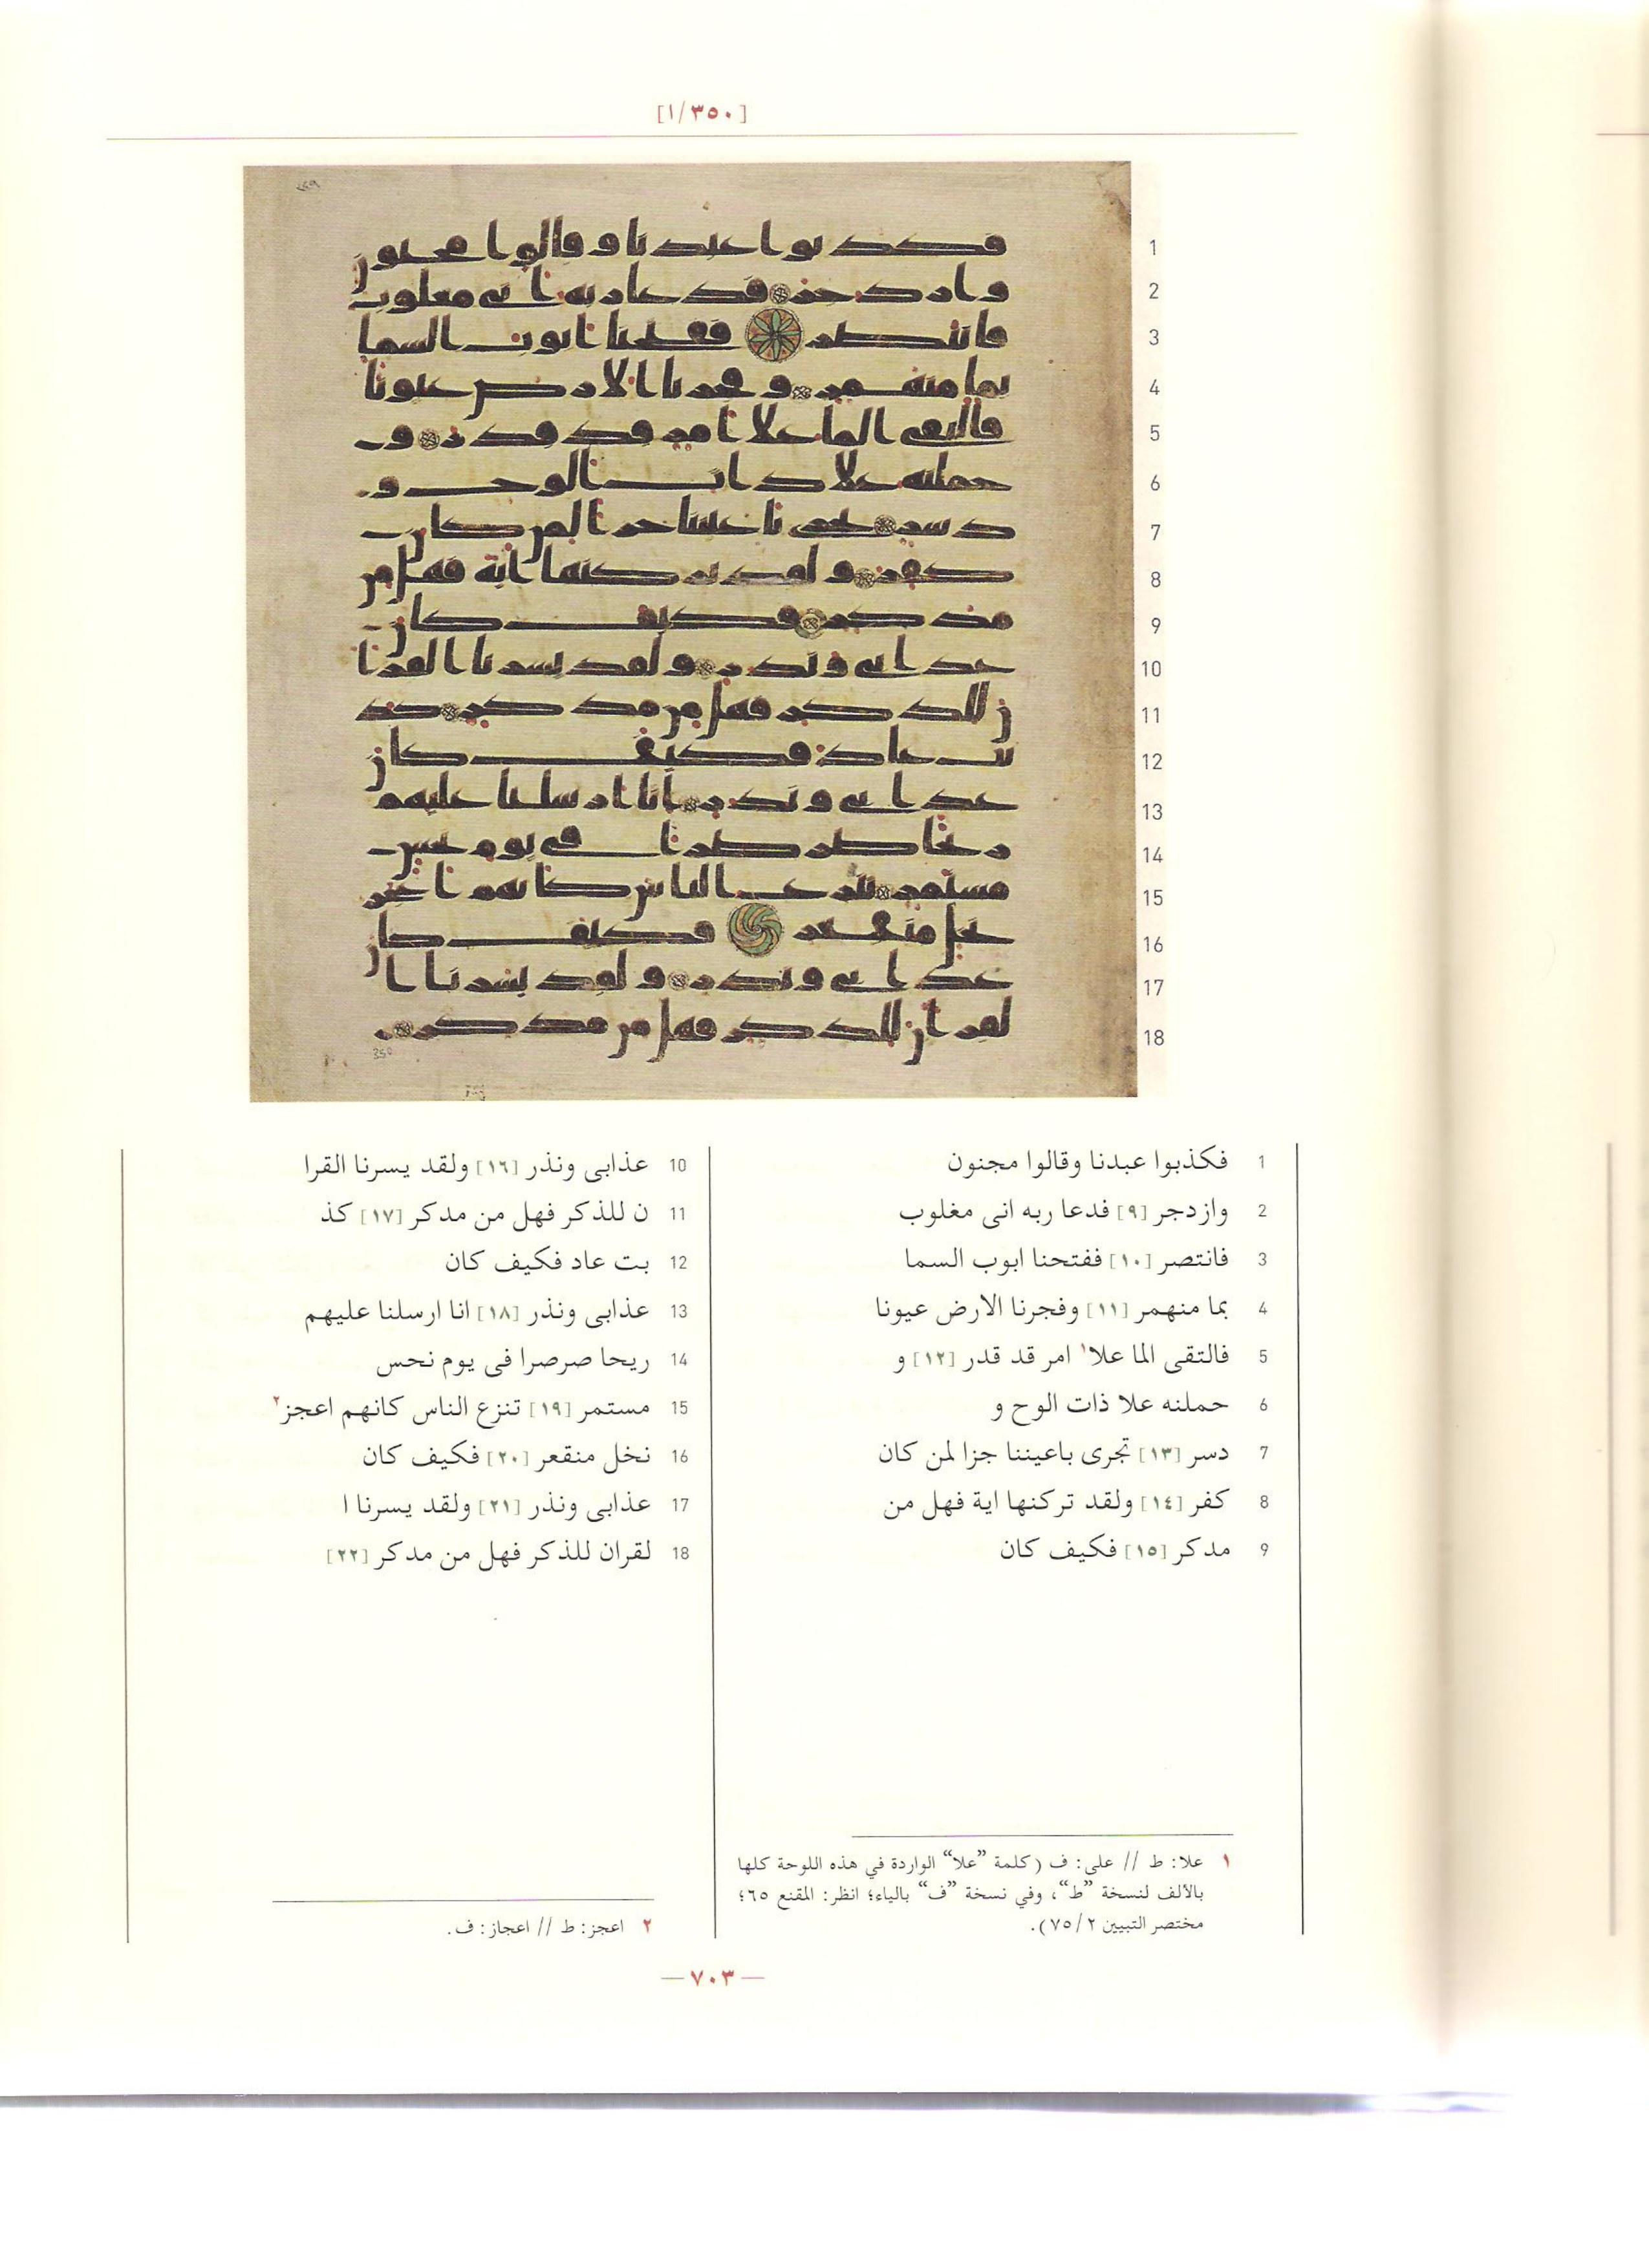 [١/٣٥٠]
1 فكذبوا عبدنا وقالوا مجنون
2 وازدجر [٩] فدعا ربه انى مغلوب
3 فانتصر [١٠] ففتحنا ابوب السما
4 بما منهمر [١١] وفجرنا الارض عيونا
5 فالتقى الما علا١ امر قد قدر [١٢] و
6 حملنه علا ذات الوح و
7 دسر [١٣] تجرى باعيننا جزا لمن كان
8 كفر [١٤] ولقد تركنها اية فهل من
9 مدكر [١٥] فكيف كان
10 عذابى ونذر [١٦] ولقد يسرنا القرا
11 ن للذكر فهل من مدكر [١٧] كذ
12 بت عاد فكيف كان
13 عذابى ونذر [١٨] انا ارسلنا عليهم
14 ريحا صرصرا فى يوم نحس
15 مستمر [١٩] تنزع الناس كانهم اعجز٢
16 نخل منقعر [٢٠] فكيف كان
17 عذابى ونذر [٢١] ولقد يسرنا ا
18 لقران للذكر فهل من مدكر [٢٢]
١ علا: ط // على: ف (كلمة ”علا“ الواردة في هذه اللوحة كلها
بالألف لنسخة ”ط“، وفي نسخة ”ف“ بالياء؛ انظر: المقنع ٦٥؛
مختصر التبيين ٧٥/٢).
٢ اعجز: ط // اعجاز: ف.
—٧٠٣—